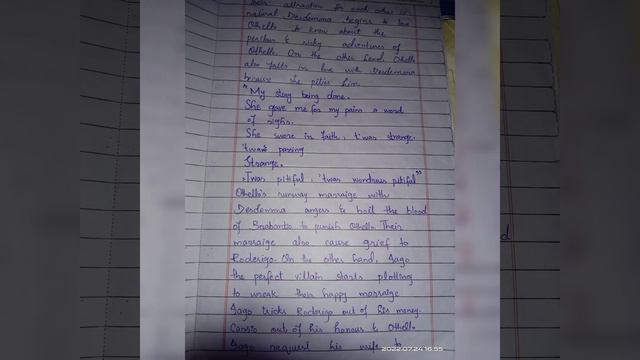 their attraction for each other is
natural Desdemona begins to love
Othello to know about the
perilous & risky adventures of
Othello. On the other hand, Othello
also falls in love with Desdemona
because she pities him
"My story being done.
She gave me for my pains a word
of sighs.
She swore in faith, t'was strange.
'twas passing
Strange.
,Twas pitiful, 'twas wondrous pitiful"
Othello's runway marraige with
Desdemona angers to boil the blood
of Brabantio to punish Othello. Their
marraige also cause grief to
Roderigo. On the other hand, Iago
the perfect villain starts plotting
to wreak their happy marraige
Iago tricks Roderigo out of his money.
Cassio out of his honour & Othello.
Iago request his wife to
2022.07.24 16:55
d